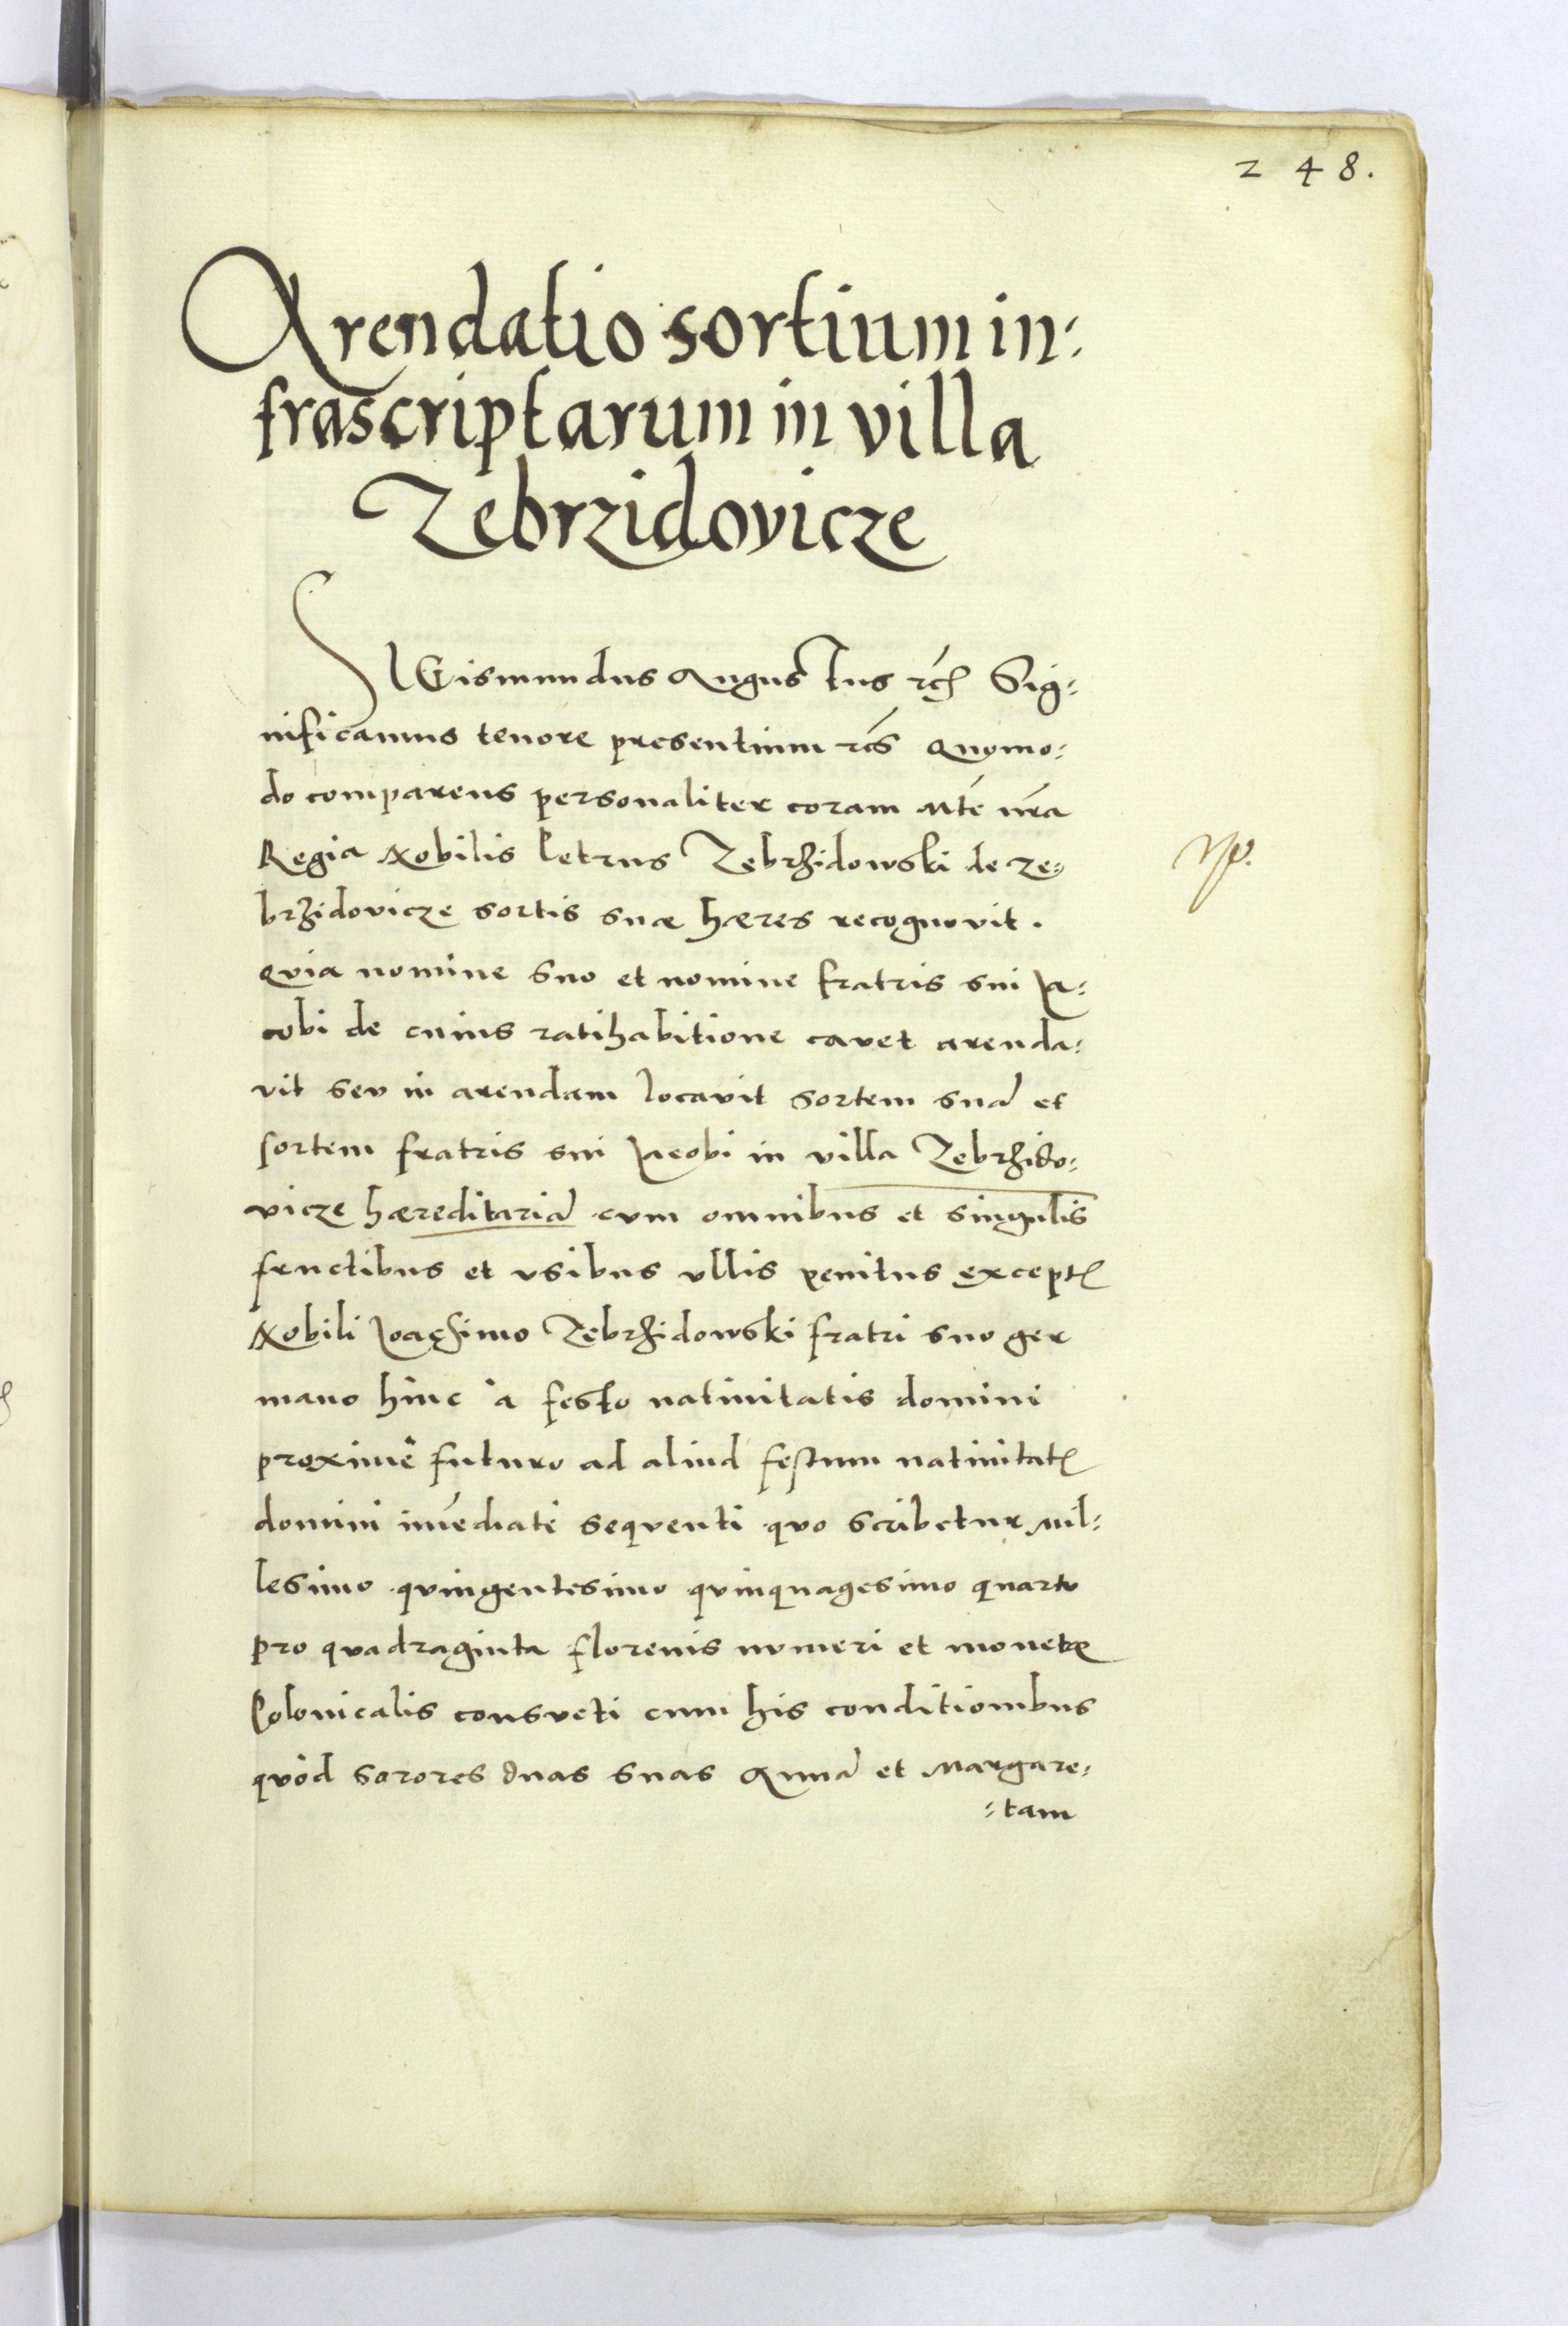 248.
Arendatio sortium in:
frascriptarum in villa
Zebrzidovicze
SIGismundus Augustus rc̃ Sig:
nificamus tenore presentium rc̃s Quomo:
do comparens personaliter coram Mte nr̃a
Regia Nobilis Petrus Zebrzidowski de Ze:
brzidovicze sortis suæ hæres recognovit.
Quia nomine suo et nomine fratris sui Ia:
cobi de cuius ratihabitione cavet arenda:
vit seu in arendam locavit sortem suã et
sortem fratris sui Iacobi in villa Zebrzido:
vicze hæreditariã cum omnibus et singulis
fructibus et usibus ullis penitus except
Nobili Ioachimo Zebrzidowski fratri suo ger
mano hinc à festo nativitatis domini
proximè futuro ad aliud festum nativitat
domini im̃ediatè sequenti quo scribetur mil:
lesimo quingentesimo quinquagesimo quarto
pro quadraginta florenis numeri et monetæ
Polonicalis consueti cum his conditionibus
quòd sorores duas suas Annã et Margare:
:tam